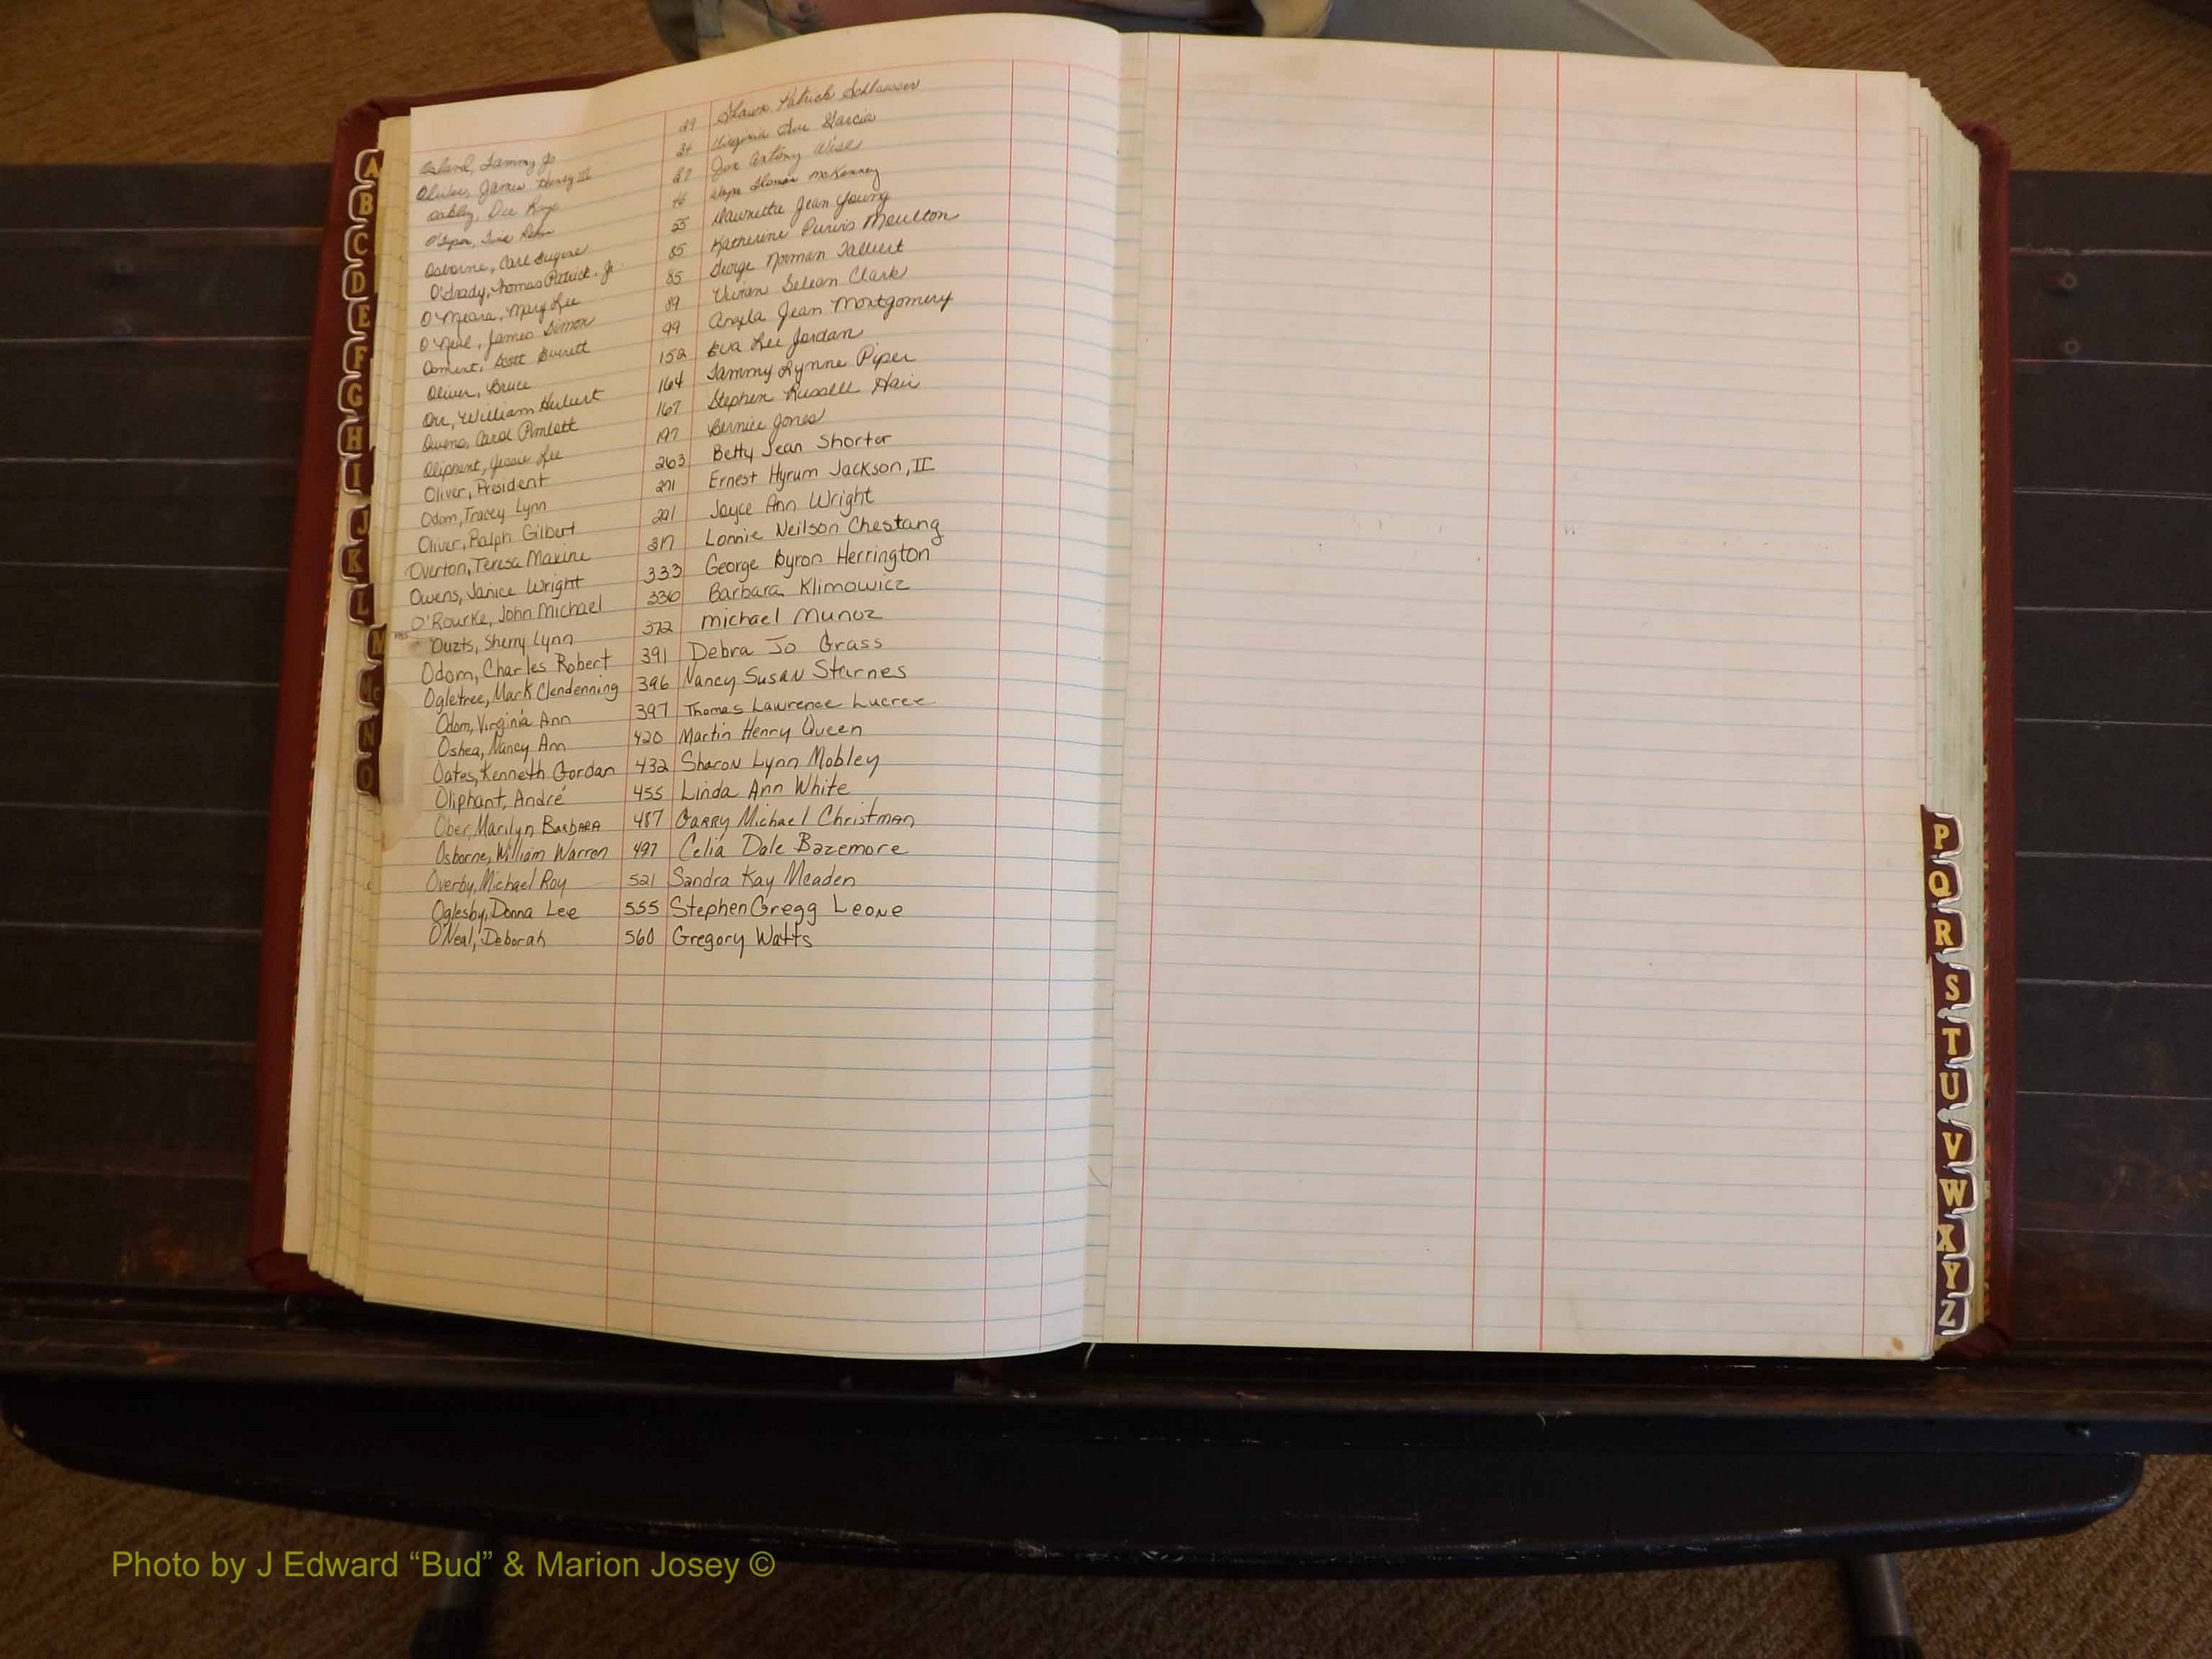 Tammy Jo 29 Shawn Patrick Schlaesser
James Henry III 34 Virginia Sue Garcia
Oakley, Dee Kaye 37 Joe Antony Wise
46 Thomas McKenney
Osborne, Carl Eugene 55 Maunette Jean Young
O'Grady, Thomas Patrick, Jr. 85 Katherine Purvis Moulton
O'Meara, Mary Lee 85 George Norman Talbert
O'Neal, James Simon 89 Vivian Clark
Scott Everett 99 Angela Jean Montgomery
Oliver, Bruce 152 Eva Lee Jordan
Orr, William Hulbert 164 Tammy Lynne Piper
Owens, Carol Pimlott 167 Stephen Russell Hair
Oliphant, Jessie Lee 197 Bernice Jones
Oliver, President 263 Betty Jean Shorter
Odom, Tracey Lynn 271 Ernest Hyrum Jackson, II
Oliver, Ralph Gilbert 291 Joyce Ann Wright
Overton, Teresa Maxine 317 Lonnie Neilson Chestang
Owens, Janice Wright 333 George Byron Herrington
O'Rourke, John Michael 336 Barbara Klimowicz
Ouzts, Sherry Lynn 372 Michael Munoz
Odom, Charles Robert 391 Debra Jo Grass
Ogletree, Mark Clendenning 396 Nancy Susan Starnes
Odom, Virginia Ann 397 Thomas Lawrence Lucree
Oshea, Nancy Ann 420 Martin Henry Queen
Oates, Kenneth Gordan 432 Sharon Lynn Mobley
Oliphant, André 455 Linda Ann White
Ober, Marilyn Barbara 487 Garry Michael Christman
Osborne, William Warren 497 Celia Dale Bazemore
Overby, Michael Roy 521 Sandra Kay Meaden
Oglesby, Donna Lee 555 Stephen Gregg Leone
O'Neal, Deborah 560 Gregory Watts
A
B
C
D
E
F
G
H
I
J
K
L
M
Mc
N
O
P
Q
R
S
T
U
V
W
X
Y
Z
Photo by J Edward “Bud” & Marion Josey ©